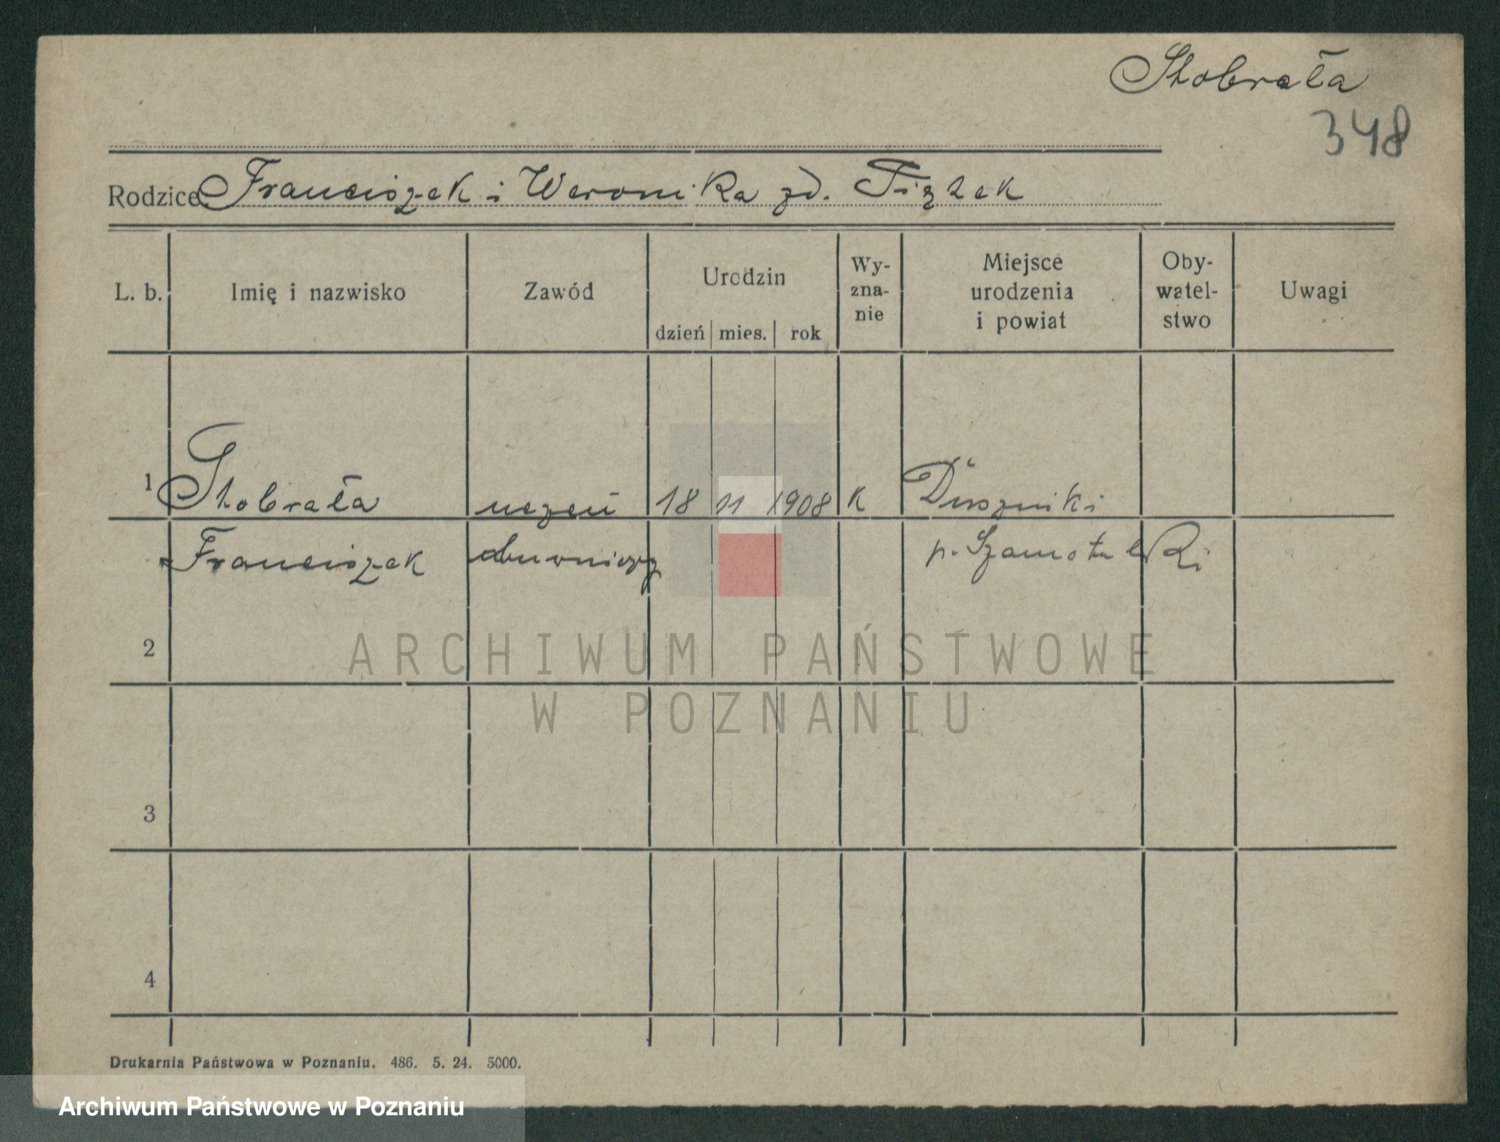 Stobrała
348
Rodzice Franciszek i Weronika zd. Piątek
L. b.
Imię i nazwisko
Zawód
Urodzin
dzień mies. rok
Wy-
zna-
nie
Miejsce
urodzenia
i powiat
Oby-
watel-
stwo
Uwagi
1 Stobrała uczeń 18 11 1908 k Duszniki
Franciszek p. Szamotulski
2
3
4
ARCHIWUM PAŃSTWOWE
W POZNANIU
Drukarnia Państwowa w Poznaniu. 486. 5. 24. 5000.
Archiwum Państwowe w Poznaniu